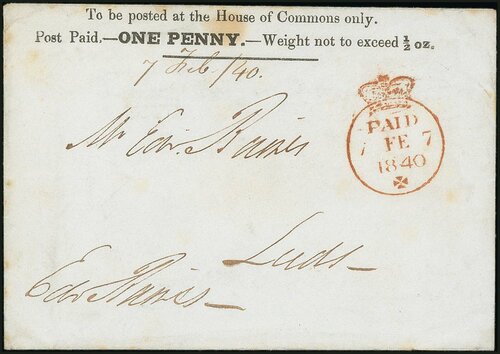 To be posted at the House of Commons only.
Post Paid,—ONE PENNY.—Weight not to exceed ½ oz.
7 Feb. /40.
Mr Edw. Baines
PAID
7 FE 7
1840
Leeds
Edw Baines